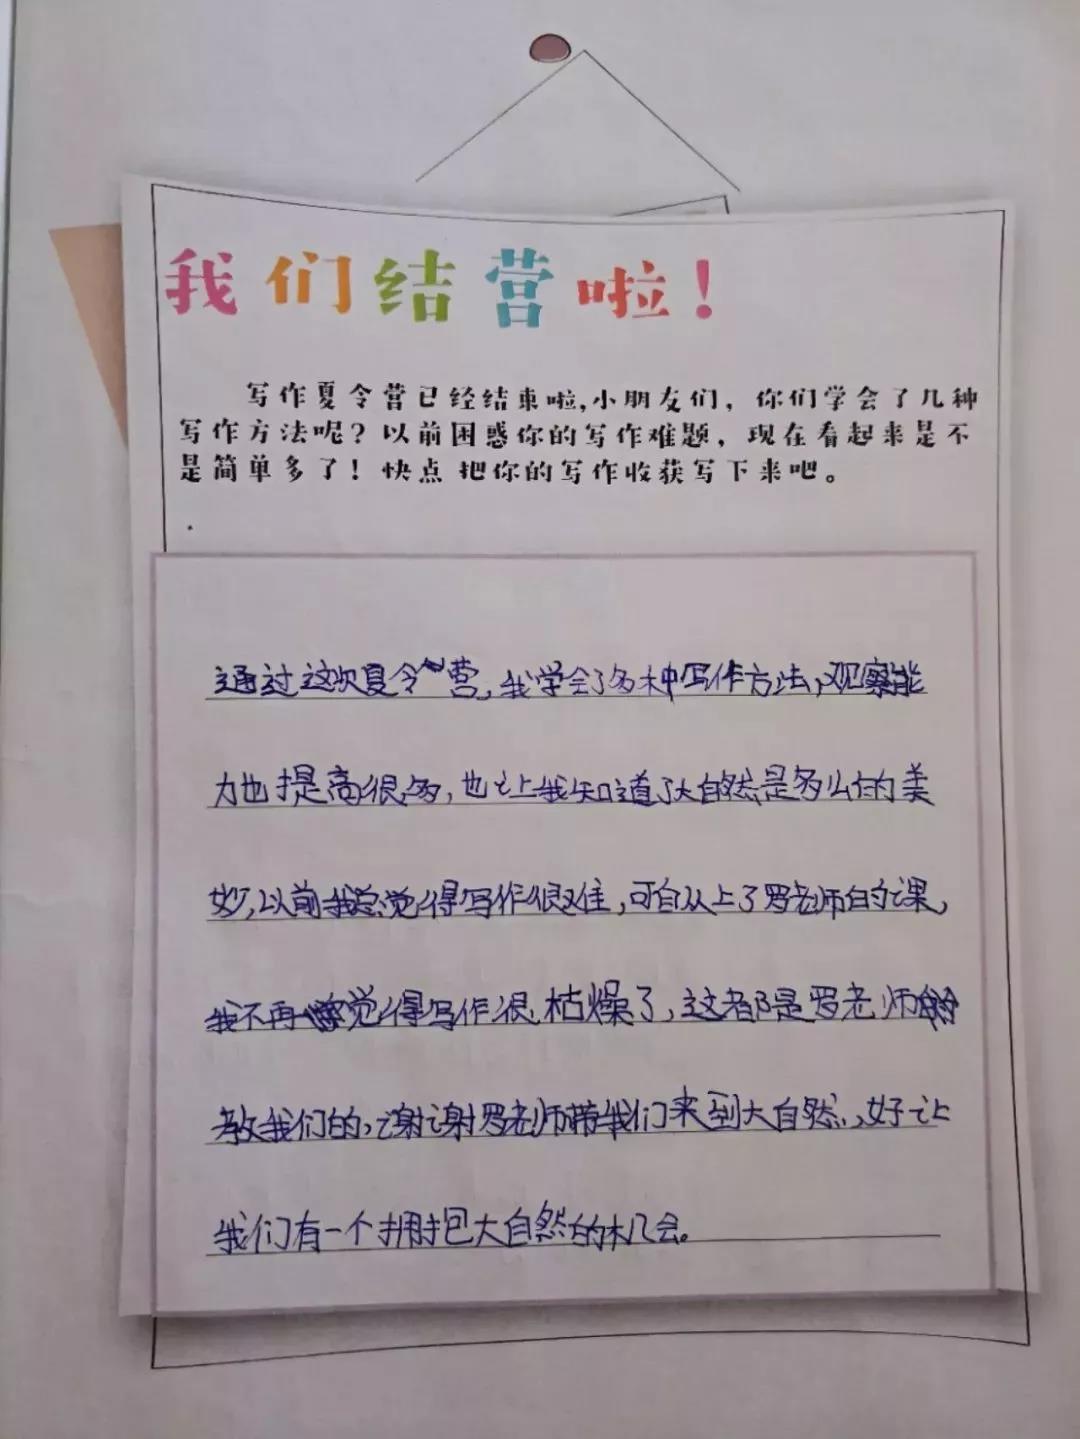 我们结营啦！
写作夏令营已经结束啦，小朋友们，你们学会了几种
写作方法呢？以前困惑你的写作难题，现在看起来是不
是简单多了！快点 把你的写作收获写下来吧。
通过这次夏令营，我学会了多种写作方法，观察能
力也提高很多，也让我知道了大自然是多么的美
妙，以前我总觉得写作很难，可自从上了罗老师的课，
我不再觉得写作很枯燥了，这都是罗老师
教我们的，谢谢罗老师带我们来到大自然，好让
我们有一个拥抱大自然的机会。